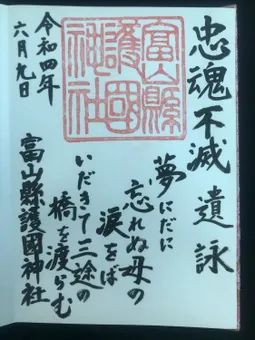 忠魂不滅 遺詠
夢にだに
忘れぬ母の
涙をば
いだきて三途の
橋を渡らむ
富山縣護國神社
富山縣
護國
神社
令和四年
六月九日